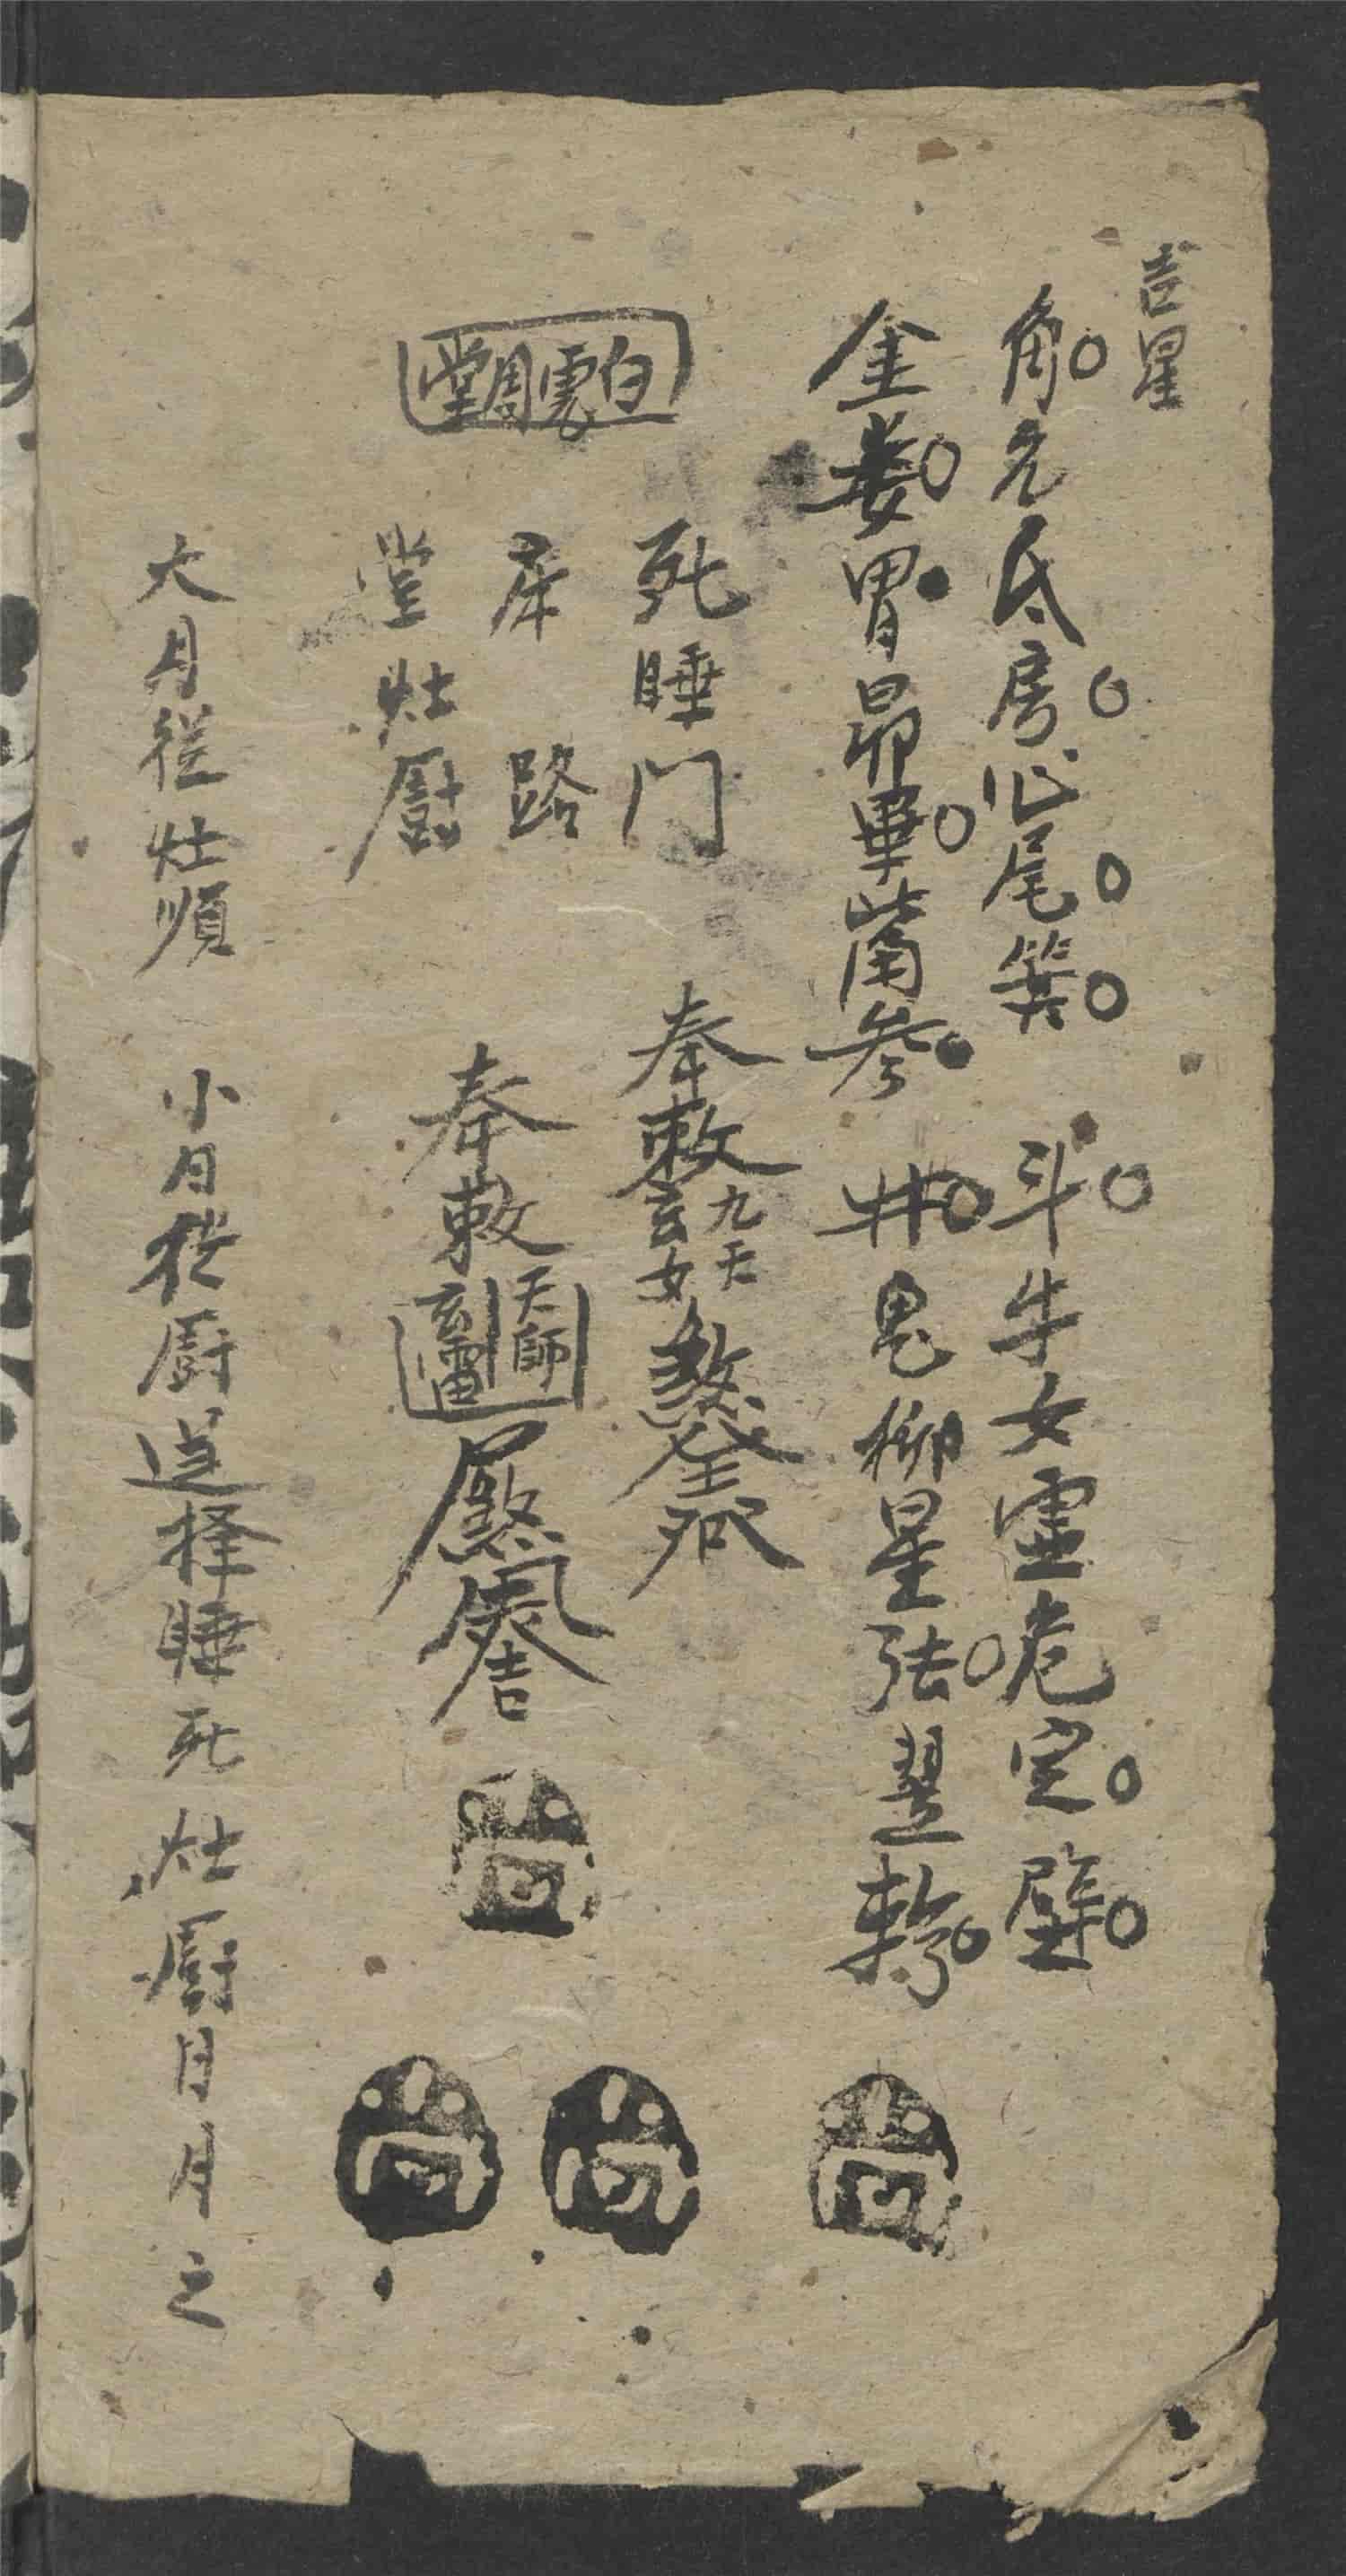 吉星
角亢氐房心尾箕 斗牛女虚危室壁
金婁胃昴畢觜参 井鬼柳星張翌軫
白虎周堂
死睡门
床 路
堂灶厨
奉敕九天玄女煞
奉敕天師
大月從灶順 小月從厨逆择睡死灶厨日月之